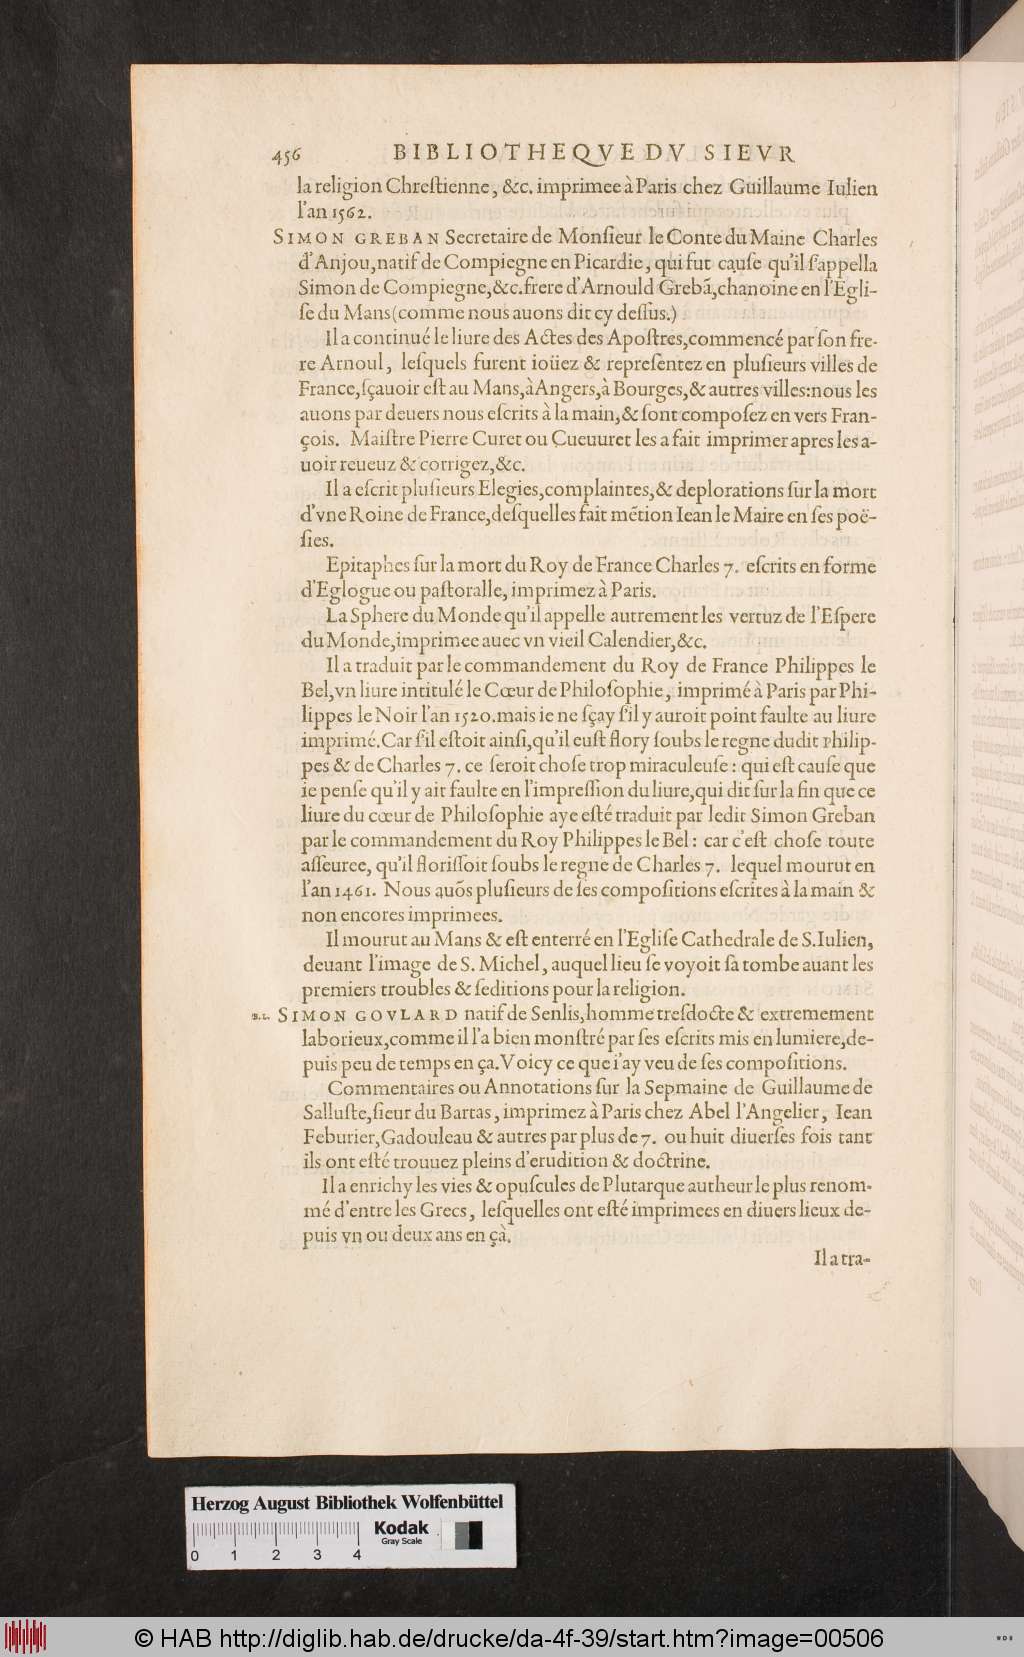 456 BIBLIOTHEQVE DV SIEVR
la religion Chreſtienne, &c. imprimee à Paris chez Guillaume Iulien
l'an 1562.
SIMON GREBAN Secretaire de Monſieur le Conte du Maine Charles
d'Anjou, natif de Compiegne en Picardie, qui fut cauſe qu'il ſ'appella
Simon de Compiegne, &c. frere d'Arnould Grebã, chanoine en l'Egli-
ſe du Mans (comme nous auons dit cy deſſus.)
Il a continué le liure des Actes des Apoſtres, commencé par ſon fre-
re Arnoul, leſquels furent ioüez & repreſentez en pluſieurs villes de
France, ſçauoir eſt au Mans, à Angers, à Bourges, & autres villes: nous les
auons par deuers nous eſcrits à la main, & ſont compoſez en vers Fran-
çois. Maiſtre Pierre Curet ou Cueuuret les a fait imprimer apres les a-
uoir reueuz & corrigez, &c.
Il a eſcrit pluſieurs Elegies, complaintes, & deplorations ſur la mort
d'vne Roine de France, deſquelles fait mẽtion Iean le Maire en ſes poë-
ſies.
Epitaphes ſur la mort du Roy de France Charles 7. eſcrits en forme
d'Eglogue ou paſtoralle, imprimez à Paris.
La Sphere du Monde qu'il appelle autrement les vertuz de l'Eſpere
du Monde, imprimee auec vn vieil Calendier, &c.
Il a traduit par le commandement du Roy de France Philippes le
Bel, vn liure intitulé le Cœur de Philoſophie, imprimé à Paris par Phi-
lippes le Noir l'an 1520. mais ie ne ſçay ſ'il y auroit point faulte au liure
imprimé. Car ſ'il eſtoit ainſi, qu'il euſt flory ſoubs le regne dudit Philip-
pes & de Charles 7. ce ſeroit choſe trop miraculeuſe: qui eſt cauſe que
ie penſe qu'il y ait faulte en l'impreſſion du liure, qui dit ſur la fin que ce
liure du cœur de Philoſophie aye eſté traduit par ledit Simon Greban
par le commandement du Roy Philippes le Bel: car c'eſt choſe toute
aſſeuree, qu'il floriſſoit ſoubs le regne de Charles 7. lequel mourut en
l'an 1461. Nous auõs pluſieurs de ſes compoſitions eſcrites à la main &
non encores imprimees.
Il mourut au Mans & eſt enterré en l'Egliſe Cathedrale de S. Iulien,
deuant l'image de S. Michel, auquel lieu ſe voyoit ſa tombe auant les
premiers troubles & ſeditions pour la religion.
B. L. SIMON GOVLARD natif de Senlis, homme treſdocte & extremement
laborieux, comme il l'a bien monſtré par ſes eſcrits mis en lumiere, de-
puis peu de temps en ça. Voicy ce que i'ay veu de ſes compoſitions.
Commentaires ou Annotations ſur la Sepmaine de Guillaume de
Salluſte, ſieur du Bartas, imprimez à Paris chez Abel l'Angelier, Iean
Feburier, Gadouleau & autres par plus de 7. ou huit diuerſes fois tant
ils ont eſté trouuez pleins d'erudition & doctrine.
Il a enrichy les vies & opuſcules de Plutarque autheur le plus renom-
mé d'entre les Grecs, leſquelles ont eſté imprimees en diuers lieux de-
puis vn ou deux ans en çà.
Il a tra-
Herzog August Bibliothek Wolfenbüttel
Kodak
Gray Scale
0 1 2 3 4
© HAB http://diglib.hab.de/drucke/da-4f-39/start.htm?image=00506